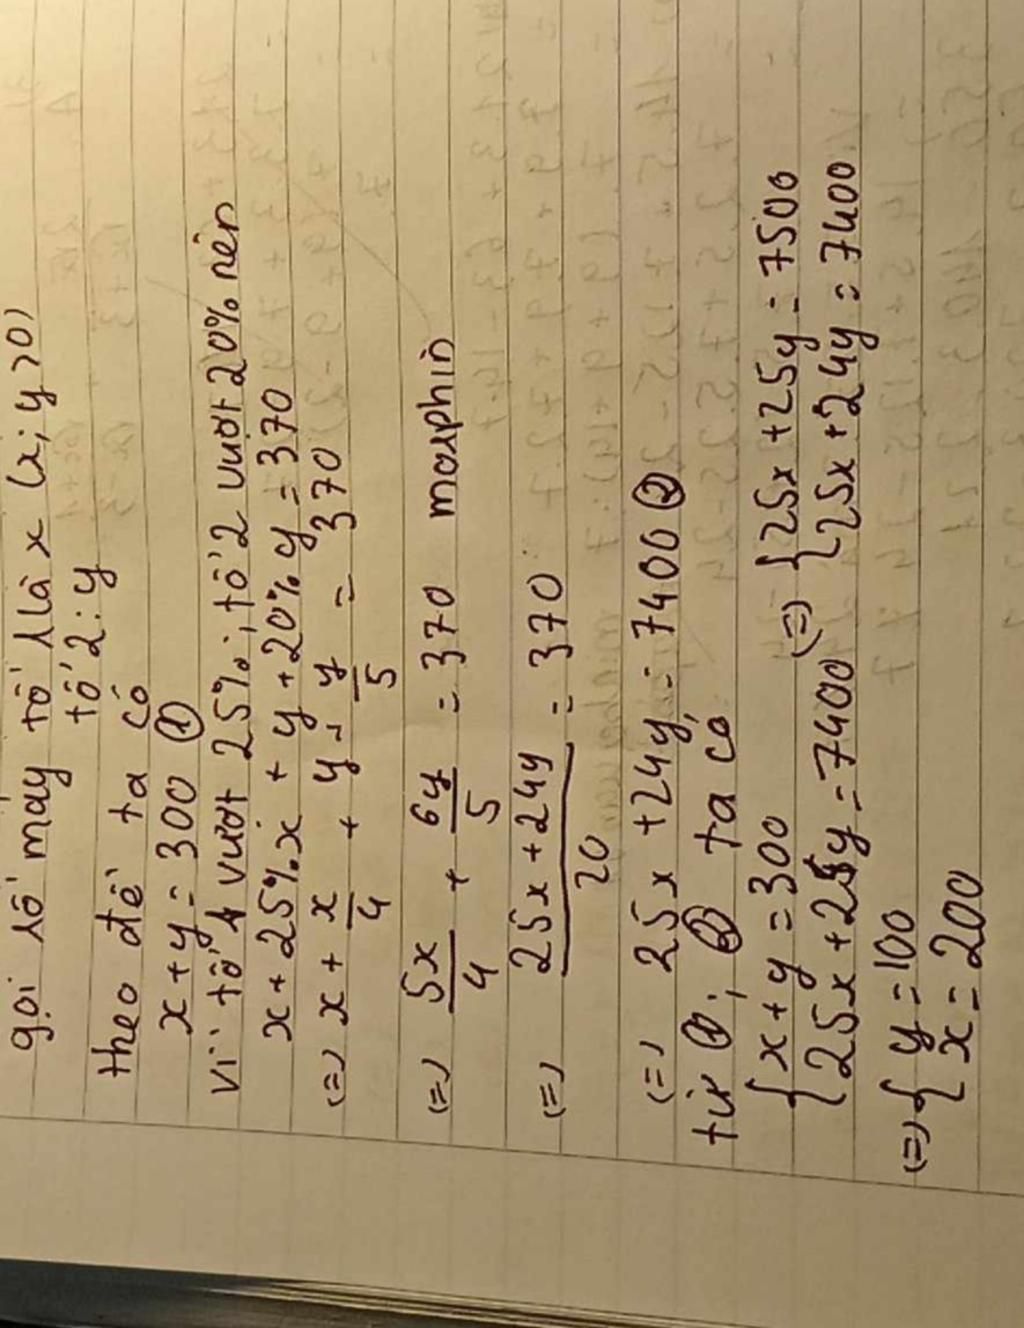 gọi lô máy tổ 1 là x (x; y > 0)
tổ 2: y
theo đề ta có
x + y = 300 (1)
vì tổ 1 vượt 25%; tổ 2 vượt 20% nên
x + 25%x + y + 20%y = 370
(=) x + x/4 + y + y/5 = 370
(=) 5x/4 + 6y/5 = 370 morphin
(=) 25x + 24y / 20 = 370
(=) 25x + 24y = 7400 (2)
từ (1); (2) ta có
{ x + y = 300
{ 25x + 24y = 7400 (=) { 25x + 25y = 7500
{ 25x + 24y = 7400
(=) { y = 100
{ x = 200